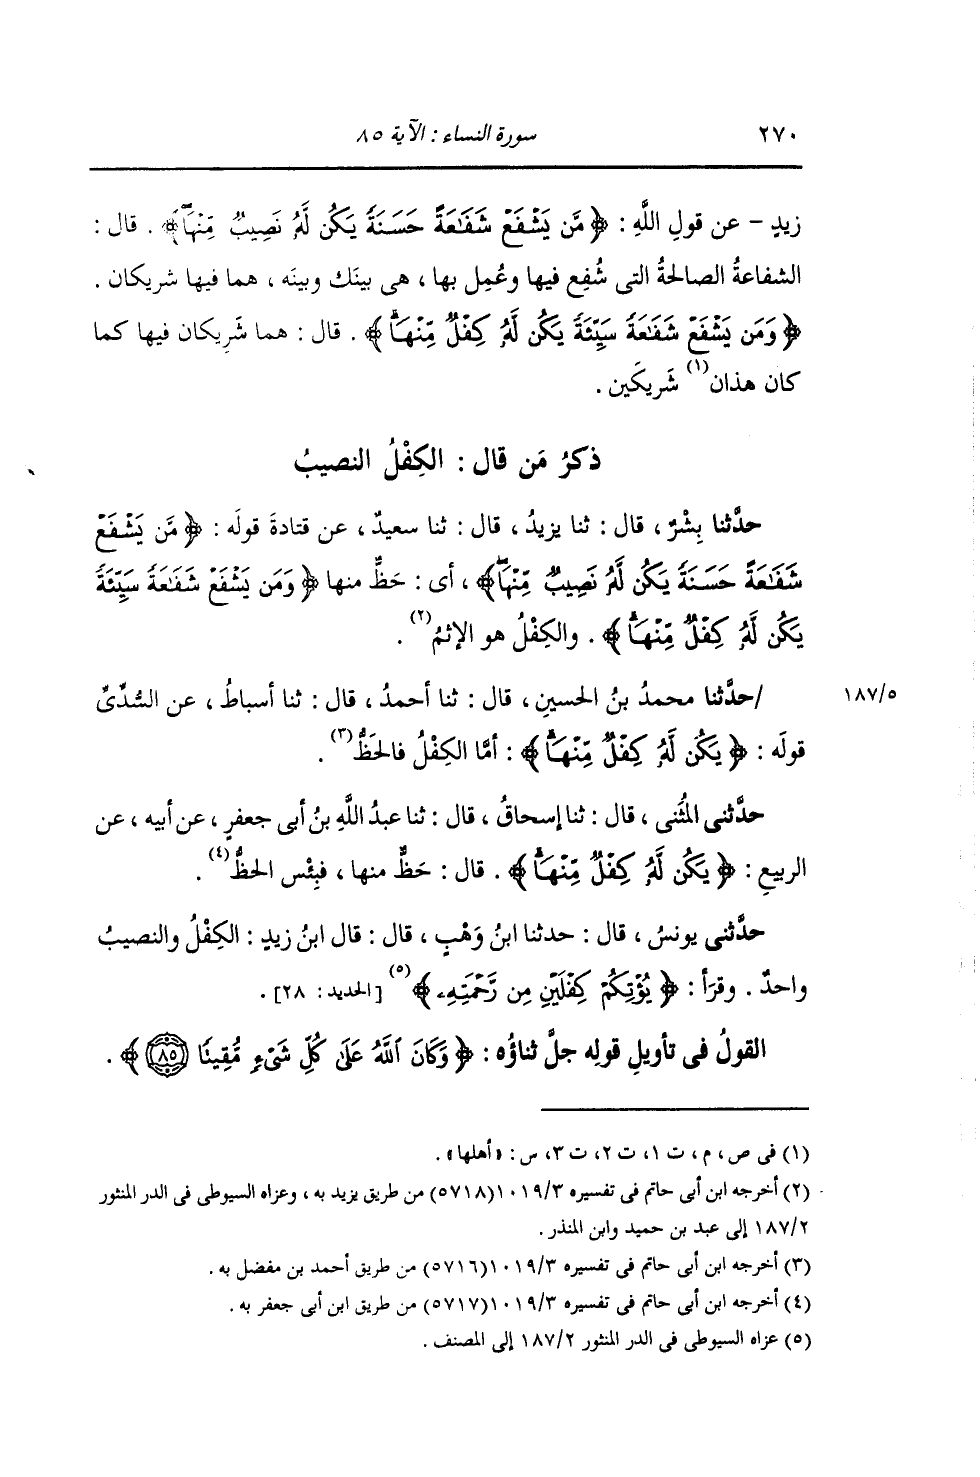 ٢٧٠ سورة النساء : الآية ٨٥
زيدٍ - عن قولِ اللَّهِ : ﴿ مَّن يَشْفَعْ شَفَٰعَةً حَسَنَةً يَكُن لَّهُۥ نَصِيبٌ مِّنْهَاۖ ﴾ . قال :
الشفاعةُ الصالحةُ التى شُفِع فيها وعُمِل بها ، هى بينَك وبينَه ، هما فيها شريكان .
﴿ وَمَن يَشْفَعْ شَفَٰعَةً سَيِّئَةً يَكُن لَّهُۥ كِفْلٌ مِّنْهَاۗ ﴾ . قال : هما شَرِيكان فيها كما
كان هذان(١) شَريكَين .
ذكرُ مَن قال : الكِفْلُ النصيبُ
حدَّثنا بِشْرٌ ، قال : ثنا يزيدُ ، قال : ثنا سعيدٌ ، عن قتادةَ قولَه : ﴿ مَّن يَشْفَعْ
شَفَٰعَةً حَسَنَةً يَكُن لَّهُۥ نَصِيبٌ مِّنْهَاۖ ﴾ ، أى : حَظٌّ منها ﴿ وَمَن يَشْفَعْ شَفَٰعَةً سَيِّئَةً
يَكُن لَّهُۥ كِفْلٌ مِّنْهَاۗ ﴾ . والكِفْلُ هو الإثمُ(٢) .
/حدَّثنا محمدُ بنُ الحسينِ ، قال : ثنا أحمدُ ، قال : ثنا أسباطُ ، عن السُّدِّىِّ ١٨٧/٥
قولَه : ﴿ يَكُن لَّهُۥ كِفْلٌ مِّنْهَاۗ ﴾ : أمَّا الكِفْلُ فالحَظُّ(٣) .
حدَّثنى المُثَنى ، قال : ثنا إسحاقُ ، قال : ثنا عبدُ اللَّهِ بنُ أبى جعفرٍ ، عن أبيه ، عن
الربيعِ : ﴿ يَكُن لَّهُۥ كِفْلٌ مِّنْهَاۗ ﴾ . قال : حَظٌّ منها ، فبِئْس الحظُّ(٤) .
حدَّثنى يونسُ ، قال : حدثنا ابنُ وَهْبٍ ، قال : قال ابنُ زيدٍ : الكِفْلُ والنصيبُ
واحدٌ . وقرَأ : ﴿ يُؤْتِكُمْ كِفْلَيْنِ مِن رَّحْمَتِهِۦ ﴾(٥) [الحديد : ٢٨] .
القولُ فى تأويلِ قولِه جلَّ ثناؤُه : ﴿ وَكَانَ ٱللَّهُ عَلَىٰ كُلِّ شَىْءٍ مُّقِيتًا ٨٥ ﴾ .
(١) فى ص ، م ، ت ١ ، ت ٢ ، ت ٣ ، س : « أهلها » .
(٢) أخرجه ابن أبى حاتم فى تفسيره ١٠١٩/٣ (٥٧١٨) من طريق يزيد به ، وعزاه السيوطى فى الدر المنثور
١٨٧/٢ إلى عبد بن حميد وابن المنذر .
(٣) أخرجه ابن أبى حاتم فى تفسيره ١٠١٩/٣ (٥٧١٦) من طريق أحمد بن مفضل به .
(٤) أخرجه ابن أبى حاتم فى تفسيره ١٠١٩/٣ (٥٧١٧) من طريق ابن أبى جعفر به .
(٥) عزاه السيوطى فى الدر المنثور ١٨٧/٢ إلى المصنف .